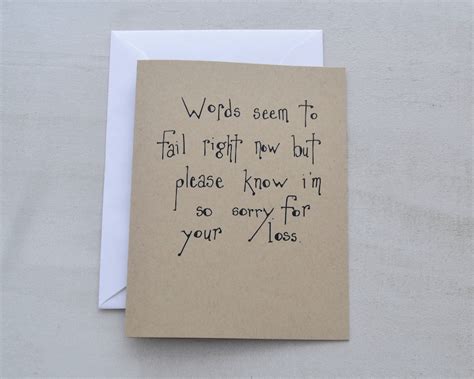 Words seem to
fail right now but
please know i'm
so sorry for
your loss.